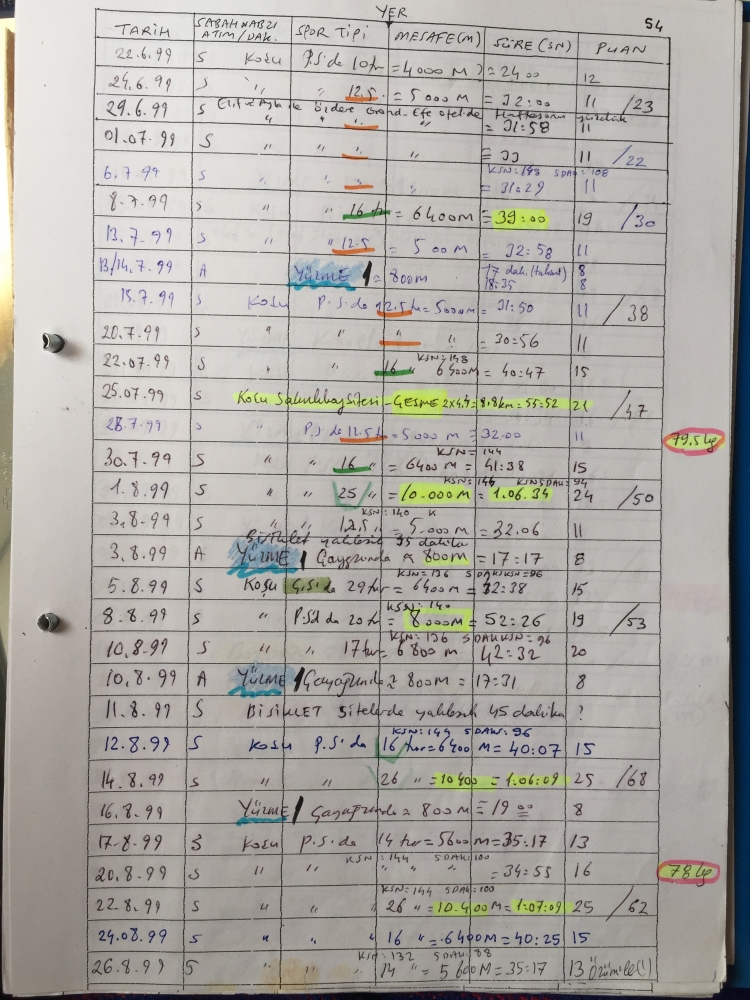 YER
54
TARİH SABAH NABZI ATIM/DAK. SPOR TİPİ MESAFE(M) SÜRE(SN) PUAN
22.6.99 S Koşu P.S'de 10 tur =4000 M =24 00 12
24.6.99 S " " 12.5 = 5000 M = 32:00 11 /23
29.6.99 S Elif ve ile Özdere Grand-Efe otelde
" " " " = 31:58 11
01.07.99 S " " " 11 /22
KSN: 148 SDAK: 108
6.7.99 S " " = 31:29 11
8.7.99 S " " 16 tur = 6400M = 39:00 19 /30
13.7.99 S " " 12.5 = 5000M = 32:58 11
13/14.7.99 A YÜZME = 800m 17 dak. 18:35 8 8
15.7.99 S Koşu P.S.de 12.5 tur = 5000M = 31:50 11 /38
20.7.99 S " " " " = 30:56 11
KSN: 148
22.07.99 S " " 16 6400M = 40:47 15
25.07.99 S Koşu Sitesi - ÇEŞME 2x4.4 = 8.8km = 55:52 21 /47
28.7.99 S " P.S de 12.5 tur = 5000 M = 32:00 11
79.5 kg
KSN= 144
30.7.99 S " " 16 " = 6400 M = 41:38 15
KSN= 144 KSN5DAK= 94
1.8.99 S " " 25 " = 10.000 M = 1.06.34 24 /50
KSN: 140
3.8.99 S " " 12.5 " = 5.000 M = 32.06 11
Bisiklet yaklaşık 35 dakika
3.8.99 A YÜZME Çayağzında ≈ 800m = 17:17 8
KSN: 136 5DAKKSN=96
5.8.99 S Koşu Ç.S'de 29 tur = 6400 M = 32:38 15
KSN: 140
8.8.99 S " P.S'd de 20 tur = 8000M = 52:26 19 /53
KSN: 136 5DAKKSN= 96
10.8.99 S " " 17 tur = 6800 M = 42:32 20
10.8.99 A YÜZME Çayağzında ≈ 800M = 17:31 8
11.8.99 S BİSİKLET Sitelerde yaklaşık 45 dakika ?
KSN: 144 5DAK: 96
12.8.99 S Koşu P.S'de 16 tur = 6400 M = 40:07 15
14.8.99 S " " 26 " = 10400 = 1.06:09 25 /68
16.8.99 YÜZME Çayağzında ≈ 800M = 19 00 8
17.8.99 S Koşu P.S.de 14 tur = 5600M = 35:17 13
KSN: 144 5DAK: 100
20.8.99 S " " " " " = 34:55 16
78 kg
KSN: 144 5DAK: 100
22.8.99 S " " 26 " = 10.400 M = 1:07:09 25 /62
24.08.99 S " " " 16 " = 6400M = 40:25 15
KSN: 132 5DAK: 88
26.8.99 S " " 14 " = 5600M = 35:17 13